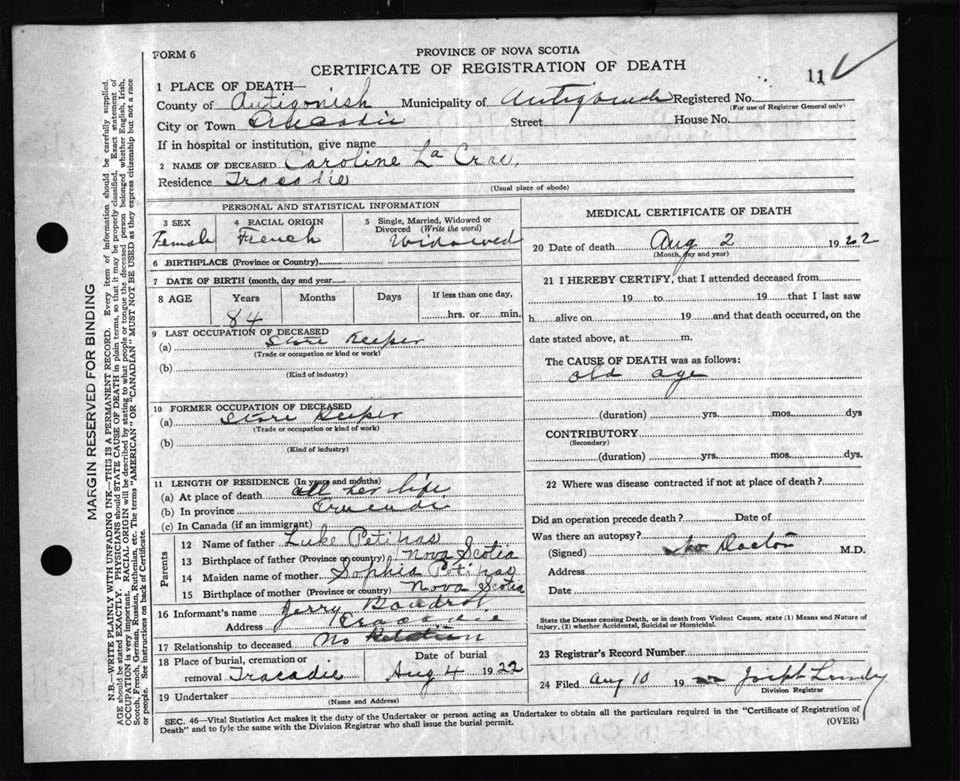 FORM 6
PROVINCE OF NOVA SCOTIA
CERTIFICATE OF REGISTRATION OF DEATH
11
1 PLACE OF DEATH—
County of Antigonish Municipality of Antigonish Registered No.
(For use of Registrar General only)
City or Town Tracadie Street House No.
If in hospital or institution, give name
2 NAME OF DECEASED Caroline La
Residence Tracadie
(Usual place of abode)
PERSONAL AND STATISTICAL INFORMATION
3 SEX
Female
4 RACIAL ORIGIN
French
5 Single, Married, Widowed or
Divorced (Write the word)
Widowed
6 BIRTHPLACE (Province or Country)
7 DATE OF BIRTH (month, day and year)
8 AGE Years Months Days If less than one day,
84 hrs. or min.
9 LAST OCCUPATION OF DECEASED
(a) Store Keeper
(Trade or occupation or kind or work)
(b)
(Kind of industry)
10 FORMER OCCUPATION OF DECEASED
(a) Store Keeper
(Trade or occupation or kind of work)
(b)
(Kind of industry)
11 LENGTH OF RESIDENCE (In years and months)
(a) At place of death all her life
(b) In province Tracadie
(c) In Canada (if an immigrant)
Parents
12 Name of father Luke Petipas
13 Birthplace of father (Province or country) Nova Scotia
14 Maiden name of mother Sophia Petipas
15 Birthplace of mother (Province or country) Nova Scotia
16 Informant's name Jerry Boudrot
Address Tracadie
17 Relationship to deceased No Relation
18 Place of burial, cremation or
removal Tracadie
Date of burial
Aug 4 1922
19 Undertaker
(Name and Address)
MEDICAL CERTIFICATE OF DEATH
20 Date of death Aug 2 1922
(Month, day and year)
21 I HEREBY CERTIFY, that I attended deceased from
19 to 19 that I last saw
h alive on 19 and that death occurred, on the
date stated above, at m.
The CAUSE OF DEATH was as follows:
old age
(duration) yrs. mos. dys
CONTRIBUTORY
(Secondary)
(duration) yrs. mos. dys.
22 Where was disease contracted if not at place of death?
Did an operation precede death? Date of
Was there an autopsy?
(Signed) No Doctor M.D.
Address
Date
State the Disease causing Death, or in death from Violent Causes, state (1) Means and Nature of
Injury, (2) whether Accidental, Suicidal or Homicidal.
23 Registrar's Record Number
24 Filed Aug 10 19 Joseph
Division Registrar
SEC. 46—Vital Statistics Act makes it the duty of the Undertaker or person acting as Undertaker to obtain all the particulars required in the "Certificate of Registration of
Death" and to fyle the same with the Division Registrar who shall issue the burial permit.
(OVER)
MARGIN RESERVED FOR BINDING
N.B.—WRITE PLAINLY WITH UNFADING INK—THIS IS A PERMANENT RECORD. Every item of information should be carefully supplied.
AGE should be stated EXACTLY. PHYSICIANS should STATE CAUSE OF DEATH in plain terms, so that it may be properly classified. Exact statement of
OCCUPATION is very important. RACIAL ORIGIN will be described by stating to what people or tongue the deceased person belonged whether English, Irish,
Scotch, French, German, Russian, Ruthenian, etc. The terms "AMERICAN" OR "CANADIAN" MUST NOT BE USED as they express citizenship but not a race
or people. See instructions on back of Certificate.